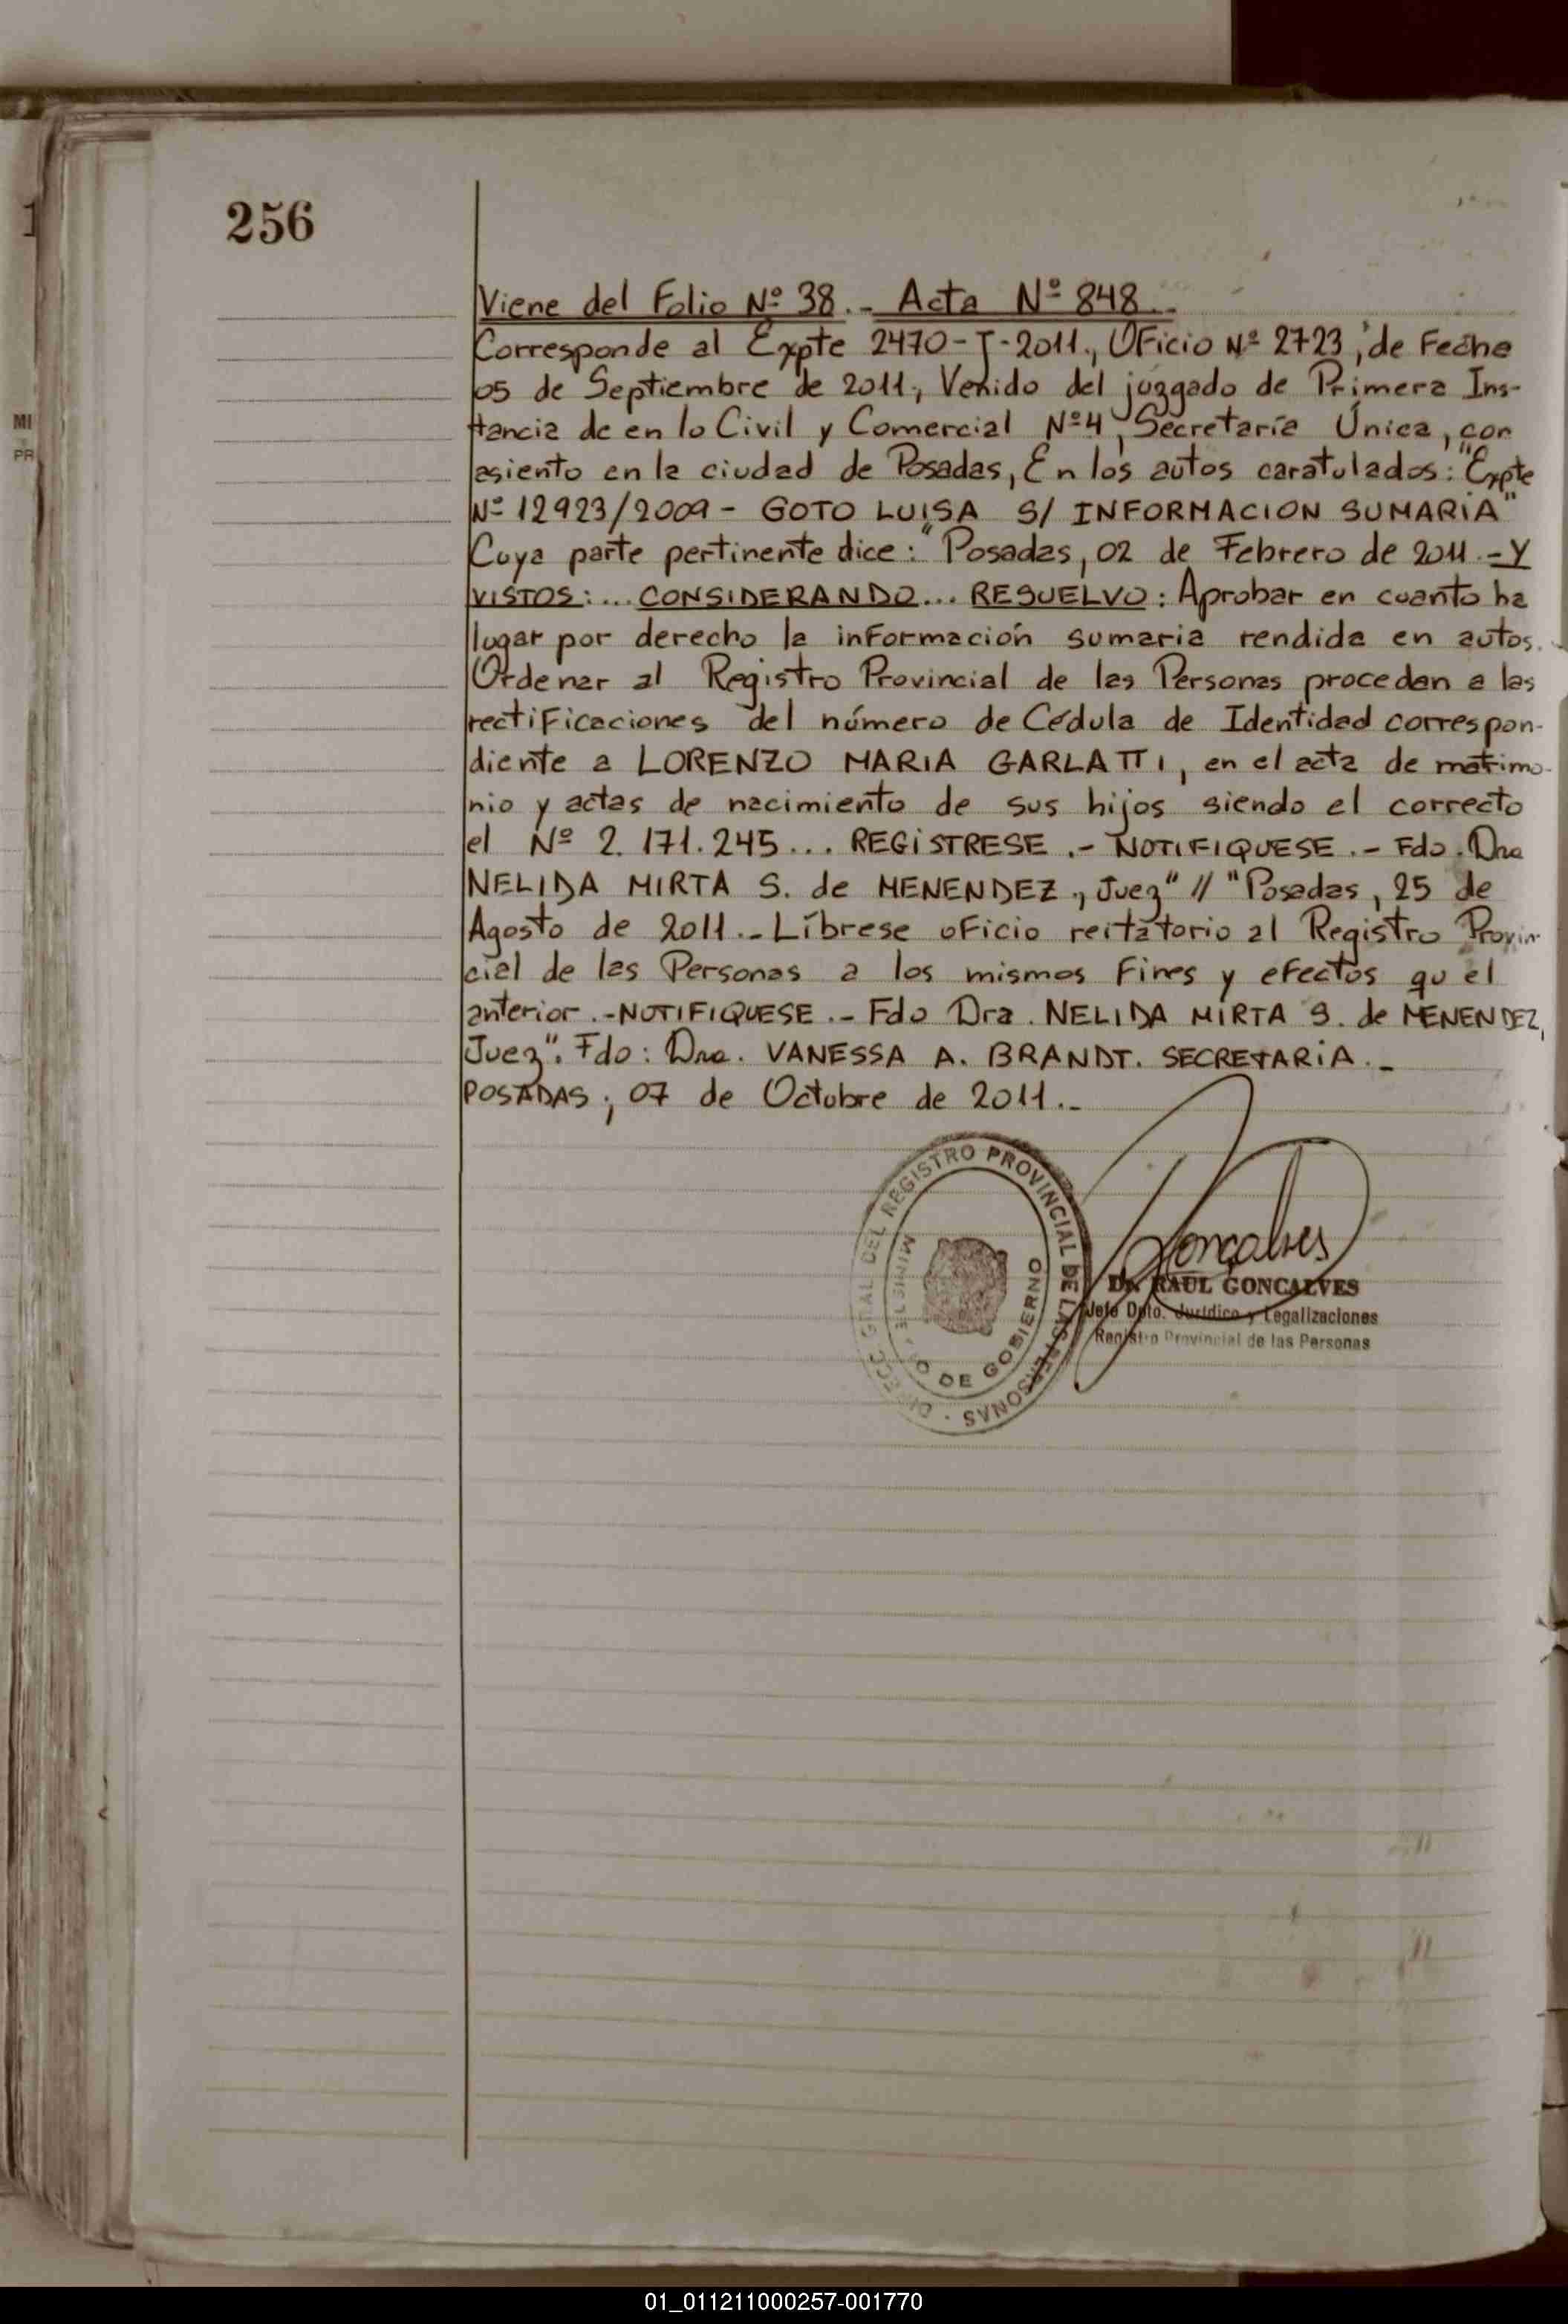 256
Viene del Folio Nº 38.- Acta Nº 848.-
Corresponde al Expte 2470-J-2011., Oficio Nº 2723, de Fecha
05 de Septiembre de 2011, Venido del juzgado de Primera Ins-
tancia de en lo Civil y Comercial Nº4, Secretaría Única, con
asiento en la ciudad de Posadas, En los autos caratulados: "Expte
Nº 12923/2009 - GOTO LUISA S/ INFORMACION SUMARIA"
Cuya parte pertinente dice: "Posadas, 02 de Febrero de 2011.- Y
VISTOS: ... CONSIDERANDO ... RESUELVO: Aprobar en cuanto ha
lugar por derecho la información sumaria rendida en autos.
Ordenar al Registro Provincial de las Personas procedan a las
rectificaciones del número de Cédula de Identidad correspon-
diente a LORENZO MARIA GARLATTI, en el acta de matrimo-
nio y actas de nacimiento de sus hijos siendo el correcto
el Nº 2.171.245... REGISTRESE.- NOTIFIQUESE.- Fdo. Dra
NELIDA MIRTA S. de MENENDEZ, Juez" // "Posadas, 25 de
Agosto de 2011.- Líbrese oficio reitatorio al Registro Provin-
cial de las Personas a los mismos fines y efectos qu el
anterior.- NOTIFIQUESE.- Fdo Dra. NELIDA MIRTA S. de MENENDEZ,
Juez". Fdo: Dra. VANESSA A. BRANDT. SECRETARIA.-
POSADAS, 07 de Octubre de 2011.-
DIRECC GRAL DEL REGISTRO PROVINCIAL DE LAS PERSONAS
MINISTERIO DE GOBIERNO
Goncalves
Dr. RAUL GONCALVES
Jefe Dpto. Jurídico y Legalizaciones
Registro Provincial de las Personas
MI
PR
01_011211000257-001770